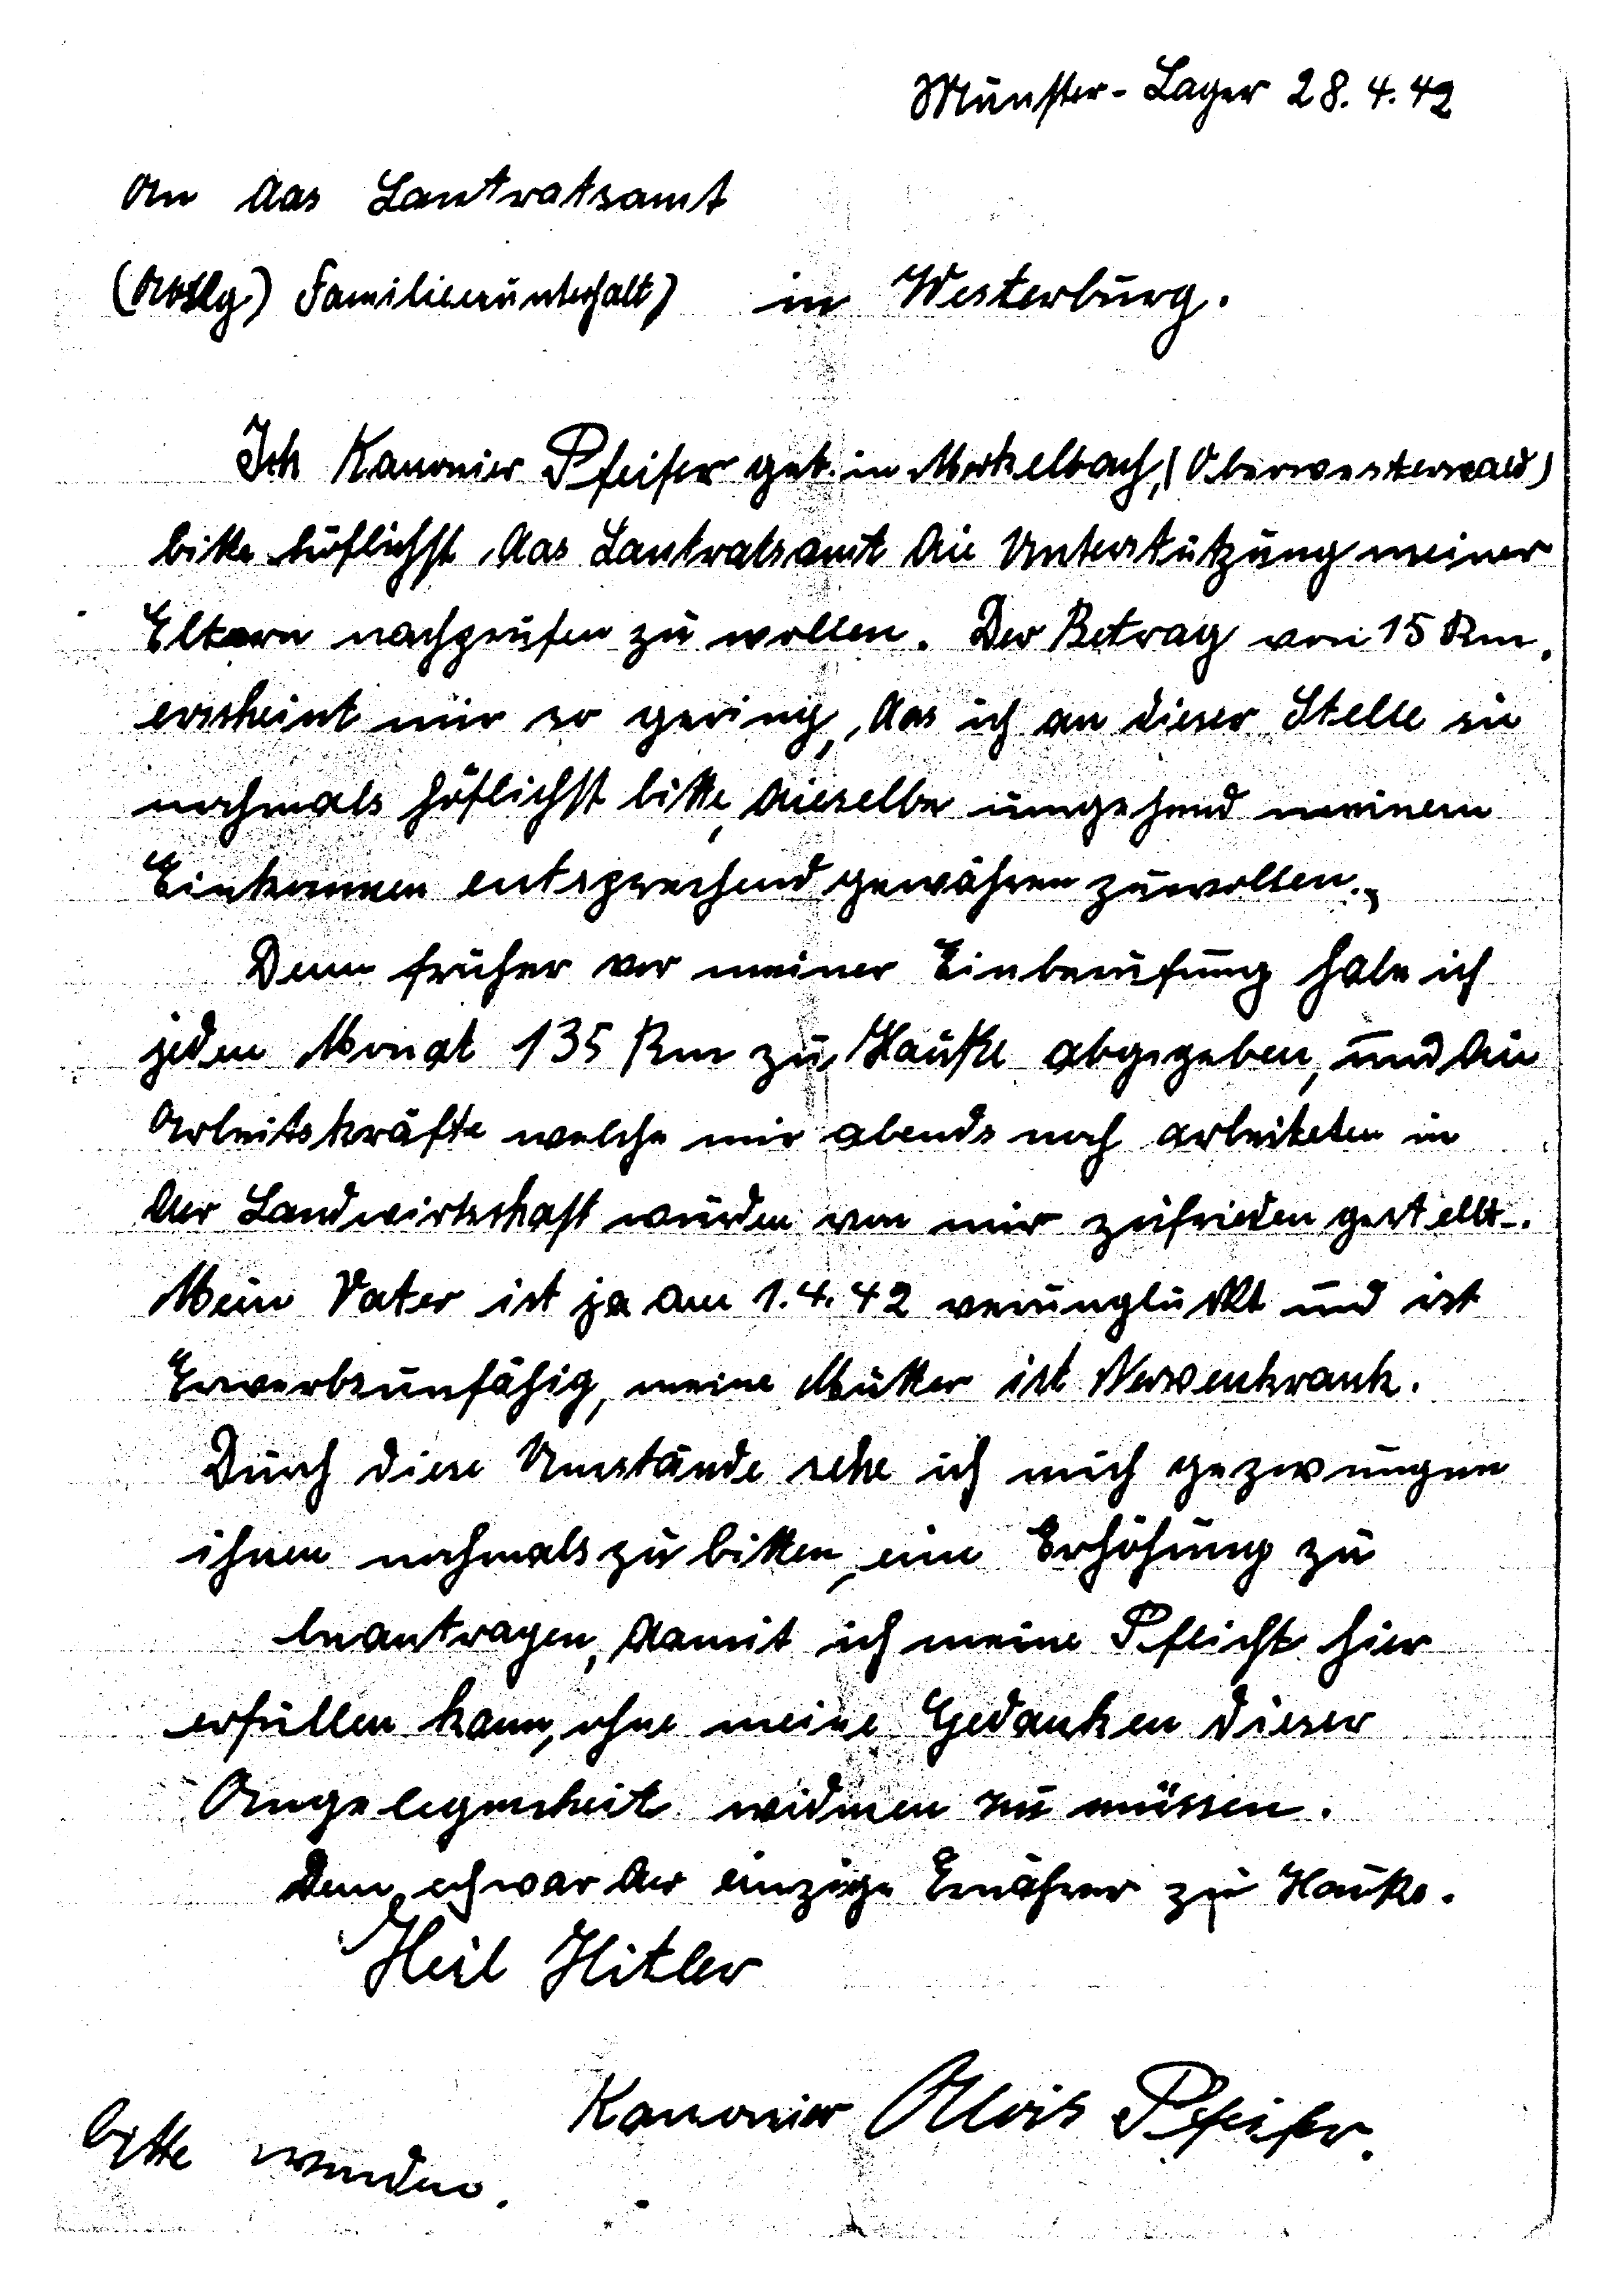 Münster-Lager 28.4.42
An das Lantratsamt
(Abtlg.) Familienunterhalt) in Westerburg.
Ich Kanonier Pfeifer geb. in Merkelbach, (Oberwesterwald)
bitte höflichst, das Lantratsamt die Unterstützung meiner
Eltern nachprüfen zu wollen. Der Betrag von 15 Rm.
erscheint mir so gering, das ich an dieser Stelle sie
nochmals höflichst bitte, dieselbe umgehend meinem
Einkommen entsprechend gewähren zuwollen.
Denn früher vor meiner Einberufung habe ich
jeden Monat 135 Rm zu Hauße abgegeben, und die
Arbeitskräfte welche mir abends noch arbeiteten in
der Landwirtschaft wurden von mir zufrieden gestellt.
Mein Vater ist ja am 1.4.42 verunglückt und ist
Erwerbsunfähig, meine Mutter ist Nervenkrank.
Durch diese Umstände sehe ich mich gezwungen
ihnen nochmals zu bitten, eine Erhöhung zu
beantragen, damit ich meine Pflicht hier
erfüllen kann, ohne meine Gedanken dieser
Angelegenheit widmen zu müssen.
Denn ich war der einzige Ernährer zu Hauße.
Heil Hitler
Kanonier Alois Pfeifer.
bitte wenden.